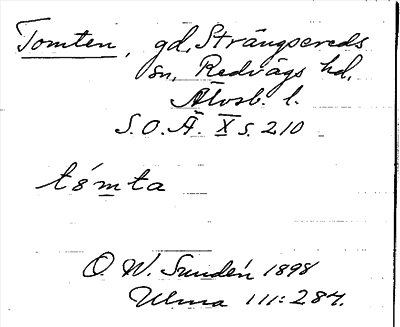 Tomten, gd, Strängsereds
sn, Redvägs hd,
Älvsb. l.
S.O.Ä. X s. 210
tómta
O W. Sundén 1898
Ulma 111:284.